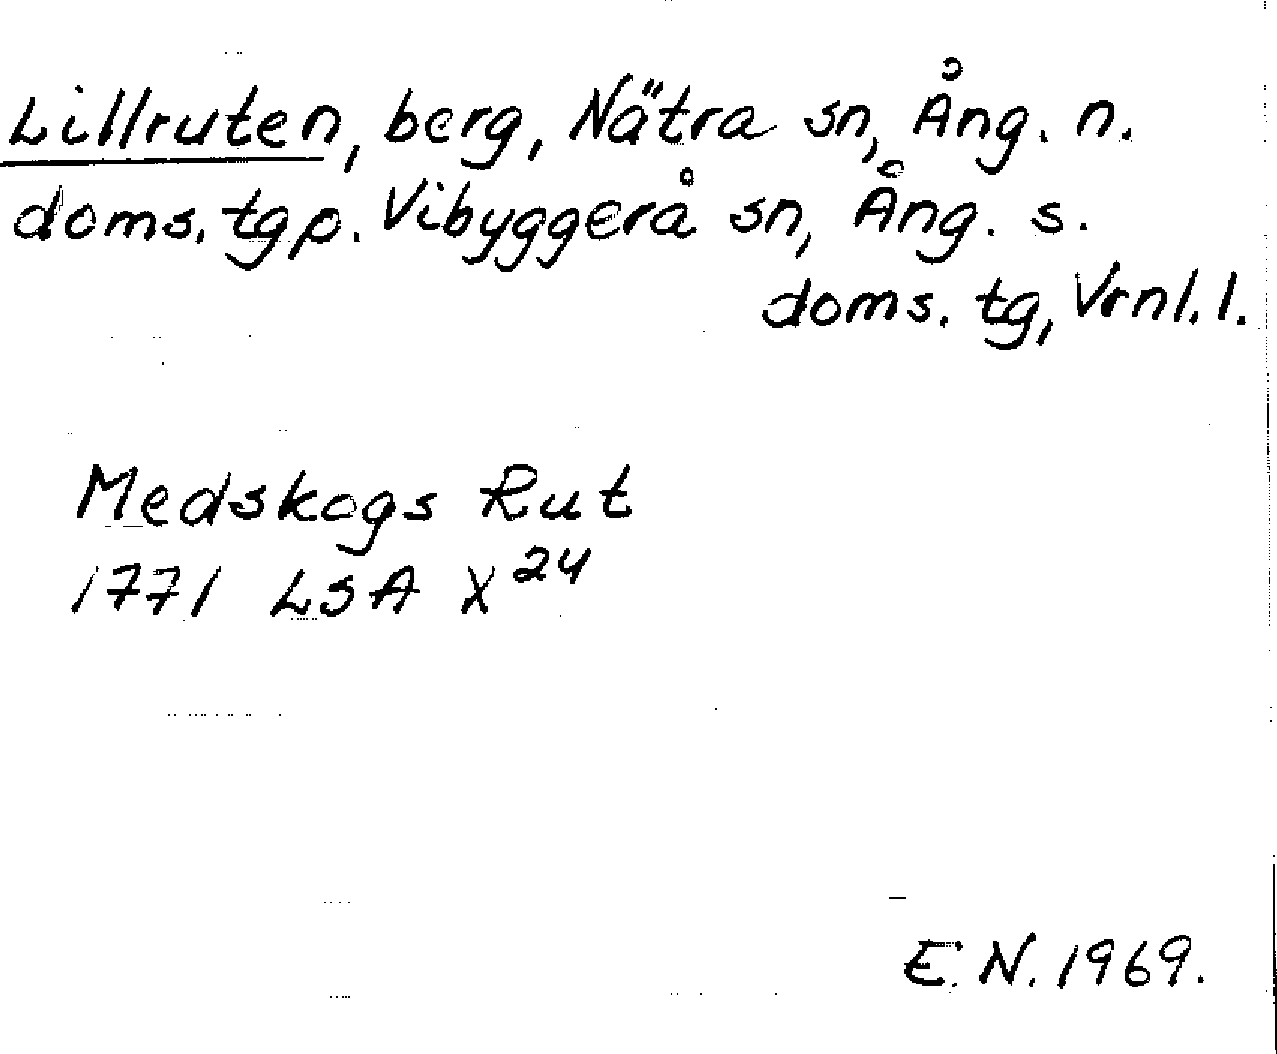 Lillruten, berg, Nätra sn, Ång. n.
doms. tgp. Vibyggerå sn, Ång. s.
doms. tg, Vrnl. l.
Medskogs Rut
1771 LSA X24
E.N. 1969.